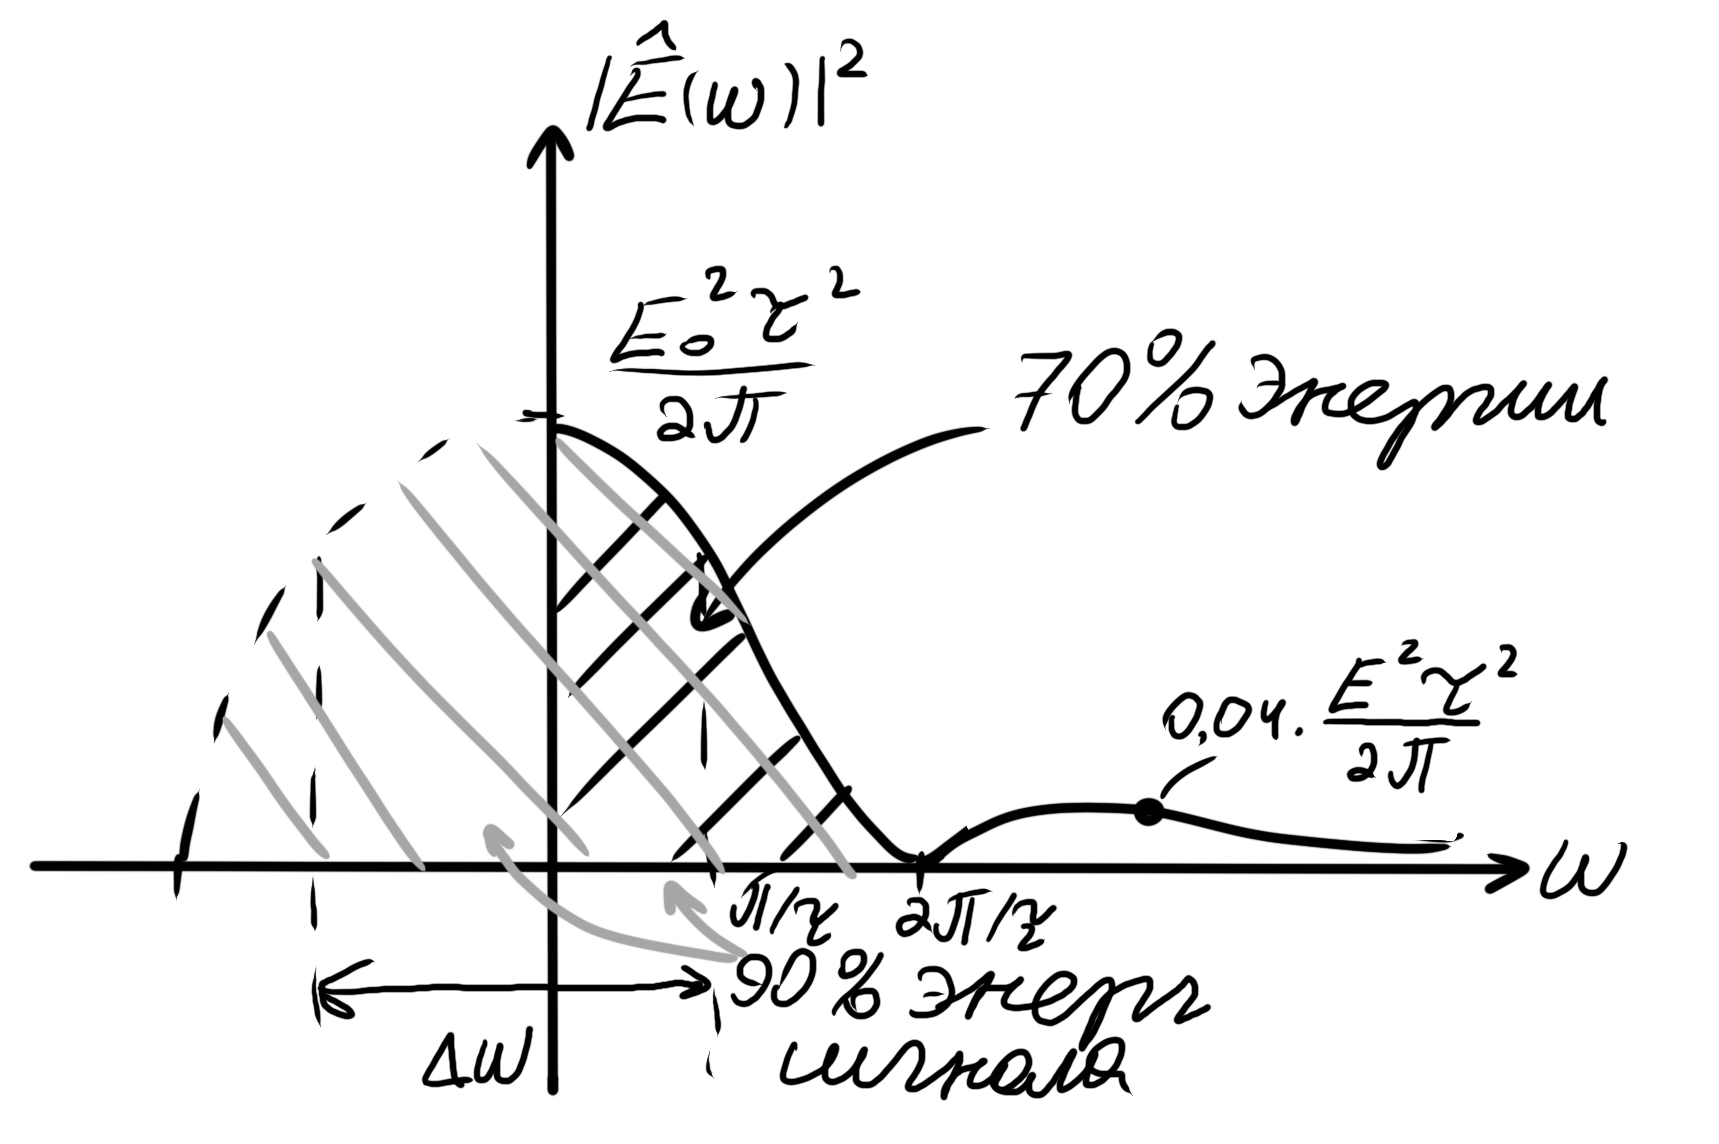 |Ê(ω)|²
E₀²τ²
2π
70% энергии
0,04. E²τ²
2π
ω
π/τ
2π/τ
90% энерг
сигнала
Δω